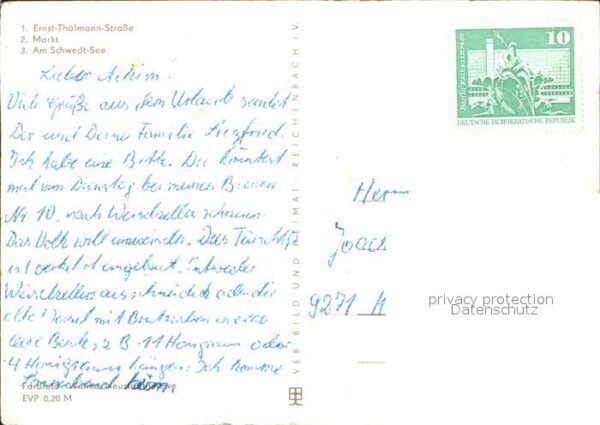 1. Ernst-Thälmann-Straße
2. Markt
3. Am Schwedt-See
Lieber Achim.
Viele Grüße aus dem Urlaub sendet
Dir und Deine Familie Siegfried.
Ich habe eine Bitte. Du könntest
mal am Dienstag bei meinen Bienen
Nr. 10. nach Weiselzellen schauen.
Das Volk will
ist verkehrt eingebaut. Entweder
Weiselzellen ausschneiden oder die
alte Weisel mit Brutwaben in eine
leere Beute, z B 11 Honigraum oder
4 Honigraum hängen. Ich komme
Sonnabend heim.
EVP 0,20 M
VEB BILD UND HEIMAT REICHENBACH i.V.
Berlin, Rathausstraße
10
DEUTSCHE DEMOKRATISCHE REPUBLIK
Herrn
9271
privacy protection
Datenschutz